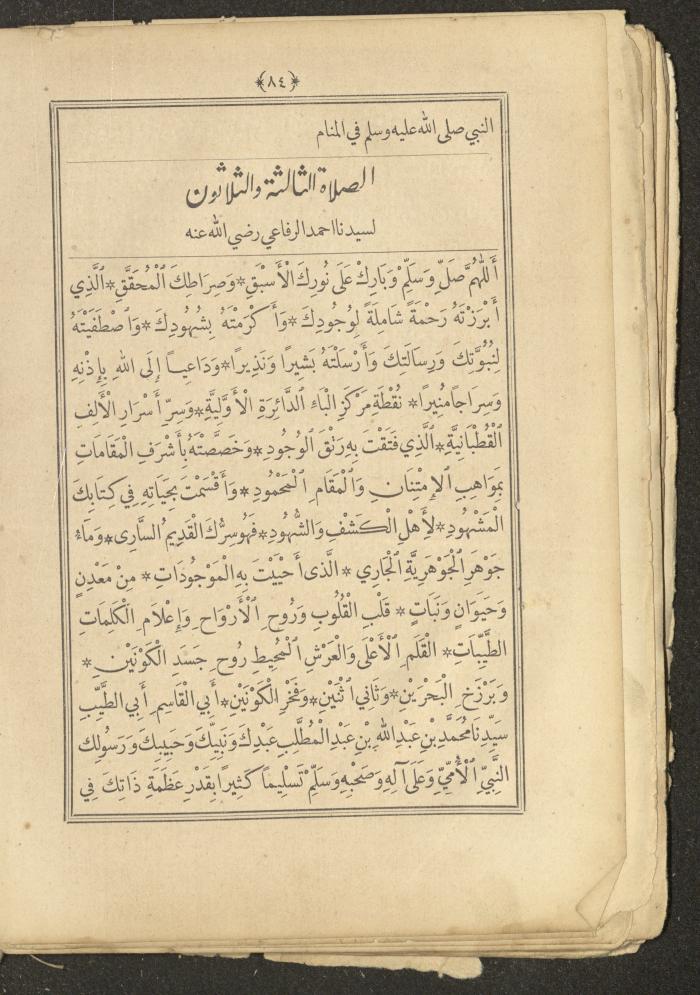 ﴿٨٤﴾
النبي صلى الله عليه وسلم في المنام
الصلاة الثالثة والثلاثون
لسيدنا احمد الرفاعي رضي الله عنه
أَللّٰهُمَّ صَلِّ وَسَلِّمْ وَبَارِكْ عَلَى نُورِكَ الْأَسْبَقِ * وَصِرَاطِكَ الْمُحَقَّقِ * الَّذِي
أَبْرَزْتَهُ رَحْمَةً شَامِلَةً لِوُجُودِكَ * وَأَكْرَمْتَهُ بِشُهُودِكَ * وَاصْطَفَيْتَهُ
لِنُبُوَّتِكَ وَرِسَالَتِكَ وَأَرْسَلْتَهُ بَشِيرًا وَنَذِيرًا * وَدَاعِيًا إِلَى اللهِ بِإِذْنِهِ
وَسِرَاجًا مُنِيرًا * نُقْطَةِ مَرْكَزِ الْبَاءِ الدَّائِرَةِ الْأَوَّلِيَّةِ * وَسِرِّ أَسْرَارِ الْأَلِفِ
الْقُطْبَانِيَّةِ * الَّذِي فَتَقْتَ بِهِ رَتْقَ الْوُجُودِ * وَخَصَّصْتَهُ بِأَشْرَفِ الْمَقَامَاتِ
بِمَوَاهِبِ الْإِمْتِنَانِ وَالْمَقَامِ الْمَحْمُودِ * وَأَقْسَمْتَ بِحَيَاتِهِ فِي كِتَابِكَ
الْمَشْهُودِ * لِأَهْلِ الْكَشْفِ وَالشُّهُودِ * فَهُوَ سِرُّكَ الْقَدِيمُ السَّارِى * وَمَاءُ
جَوْهَرِ الْجَوْهَرِيَّةِ الْجَارِي * الَّذِى أَحْيَيْتَ بِهِ الْمَوْجُودَاتِ * مِنْ مَعْدِنٍ
وَحَيَوَانٍ وَنَبَاتٍ * قَلْبِ الْقُلُوبِ وَرُوحِ الْأَرْوَاحِ وَإِعْلَامِ الْكَلِمَاتِ
الطَّيِّبَاتِ * الْقَلَمِ الْأَعْلَى وَالْعَرْشِ الْمُحِيطِ رُوحِ جَسَدِ الْكَوْنَيْنِ *
وَبَرْزَخِ الْبَحْرَيْنِ * وَثَانِي اثْنَيْنِ * وَفَخْرِ الْكَوْنَيْنِ * أَبِي الْقَاسِمِ أَبِي الطَّيِّبِ
سَيِّدِنَا مُحَمَّدِ بْنِ عَبْدِ اللهِ بْنِ عَبْدِ الْمُطَّلِبِ عَبْدِكَ وَنَبِيِّكَ وَحَبِيبِكَ وَرَسُولِكَ
النَّبِيِّ الْأُمِّيِّ وَعَلَى آلِهِ وَصَحْبِهِ وَسَلِّمْ تَسْلِيمًا كَثِيرًا بِقَدْرِ عَظَمَةِ ذَاتِكَ فِي